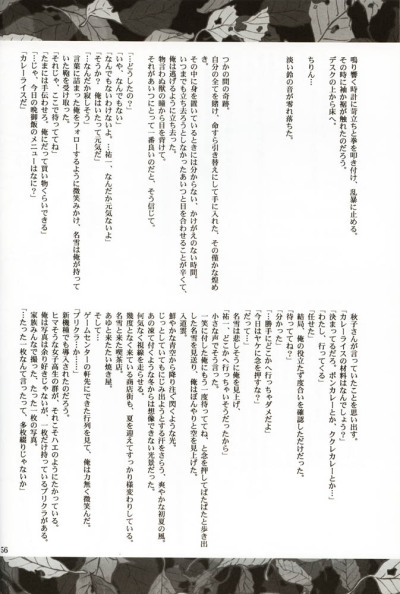 鳴り響く時計に苛立ちと拳を叩き付け、乱暴に止める。
その時に袖か裾が触れたのだろう。
デスクの上から床へ。
ちりん…
淡い鈴の音が零れ落ちた。
つかの間の奇跡。
自分の全てを賭け、命すら引き替えにして手に入れた、その僅かな煌め
き。
その中に身を置いているときには分からない、かけがえのない時間。
いつまでも立ち去ろうとしなかったあいつと目を合わせることが辛くて、
俺は逃げるように立ち去った。
物言わぬ獣の瞳から目を背けて。
それがあいつにとって一番良いのだと、そう信じて。
「…どうしたの?」
「いや、なんでもない」
「なんでもないわけないよ。…祐一、なんだか元気ないよ」
「そうか? 俺はいたって元気だ」
「…うん、なんだか寂しそう」
言葉に詰まった俺をフォローするように微笑みかけ、名雪は俺が持って
いた鞄を受け取った。
「それじゃ、ここで待っててね」
「たまには手伝わせろ、俺にだって買い物くらいできる」
「…じゃ、今日の晩御飯のメニューはなに?」
「カレーライスだ」
秋子さんが言っていたことを思い出す。
「カレーライスの材料はなんでしょう?」
「決まってるだろ。ボンカレーとか、ククレカレーとか…」
「わたし、行ってくる」
「任せた」
結局、俺の役立たず度合いを確認しただけだった。
「待っててね?」
「分かった」
「…勝手にどこかへ行っちゃダメだよ」
「今日はヤケに念を押すな?」
「だって…」
名雪は悲しそうに俺を見上げ、
「祐一、どこかへ行っちゃいそうだったから」
小さな声でそう言った。
一笑に付した俺にもう一度待っててね、と念を押してぱたぱたと歩き出
した名雪を見送り、俺はぼんやりと空を見上げた。
入道雲。
鮮やかな青空から降り注ぐ閃くような光。
じっとしていてもにじみ出ようとする汗をさらう、爽やかな初夏の風。
あの凍て付くような冬からは想像できない光景だった。
何気なく視線を走らせる。
幾度となく来ている商店街も、夏を迎えてすっかり様変わりしている。
名雪と来た喫茶店。
あゆと来たたい焼き屋。
そして…
ゲームセンターの軒先にできた行列を見て、俺は力無く微笑んだ。
「プリクラ…か…」
新機種でも導入されたのだろう。
ヒマそうな女子高生の群が、それこそハエのようにたかっている。
俺は写真は余り好きじゃないが、一枚だけ持っているプリクラがある。
家族みんなで撮った、たった一枚の写真。
「…たった一枚なんて言ったって、多枚綴りじゃないか」
56